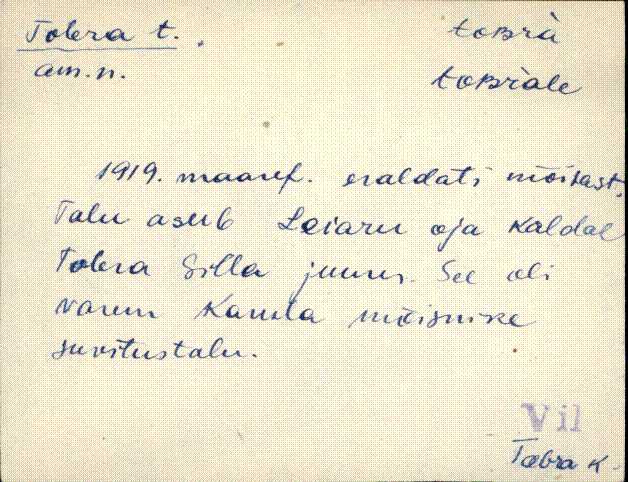 Tobra t.
toʙrà
am.n.
toʙrale
1919. maaref. eraldati mõisast.
Talu asub Leiaru oja kaldal
Tobra silla juures. See oli
varem Kamela mõisnike
suvitustalu.
Vil
Tobra k.